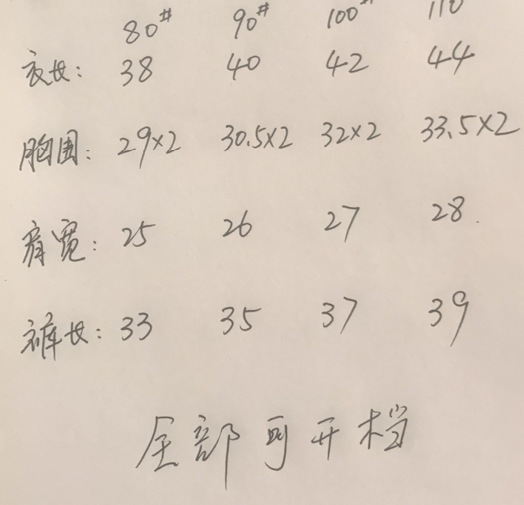 80# 90# 100# 110
衣长: 38 40 42 44
胸围: 29×2 30.5×2 32×2 33.5×2
肩宽: 25 26 27 28
裤长: 33 35 37 39
全部可开档